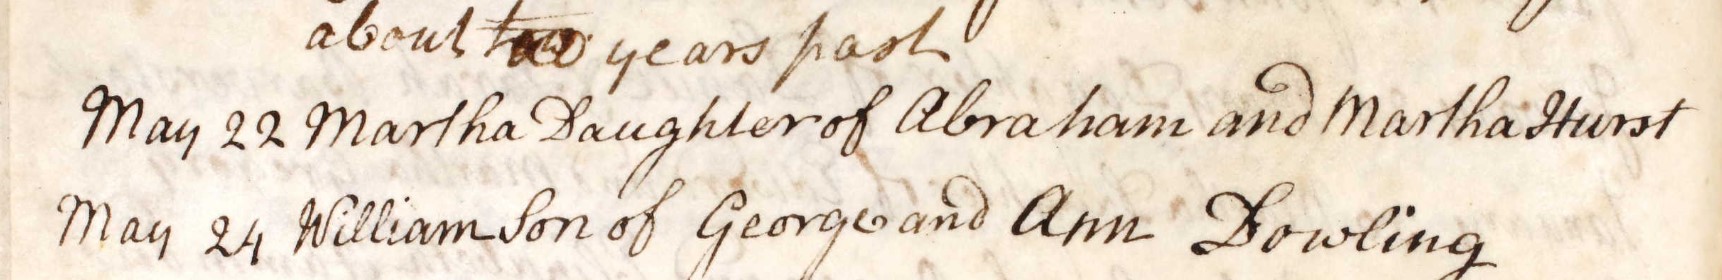 about two years past
May 22 Martha Daughter of Abraham and Martha Hurst
May 24 William Son of George and Ann Dowling